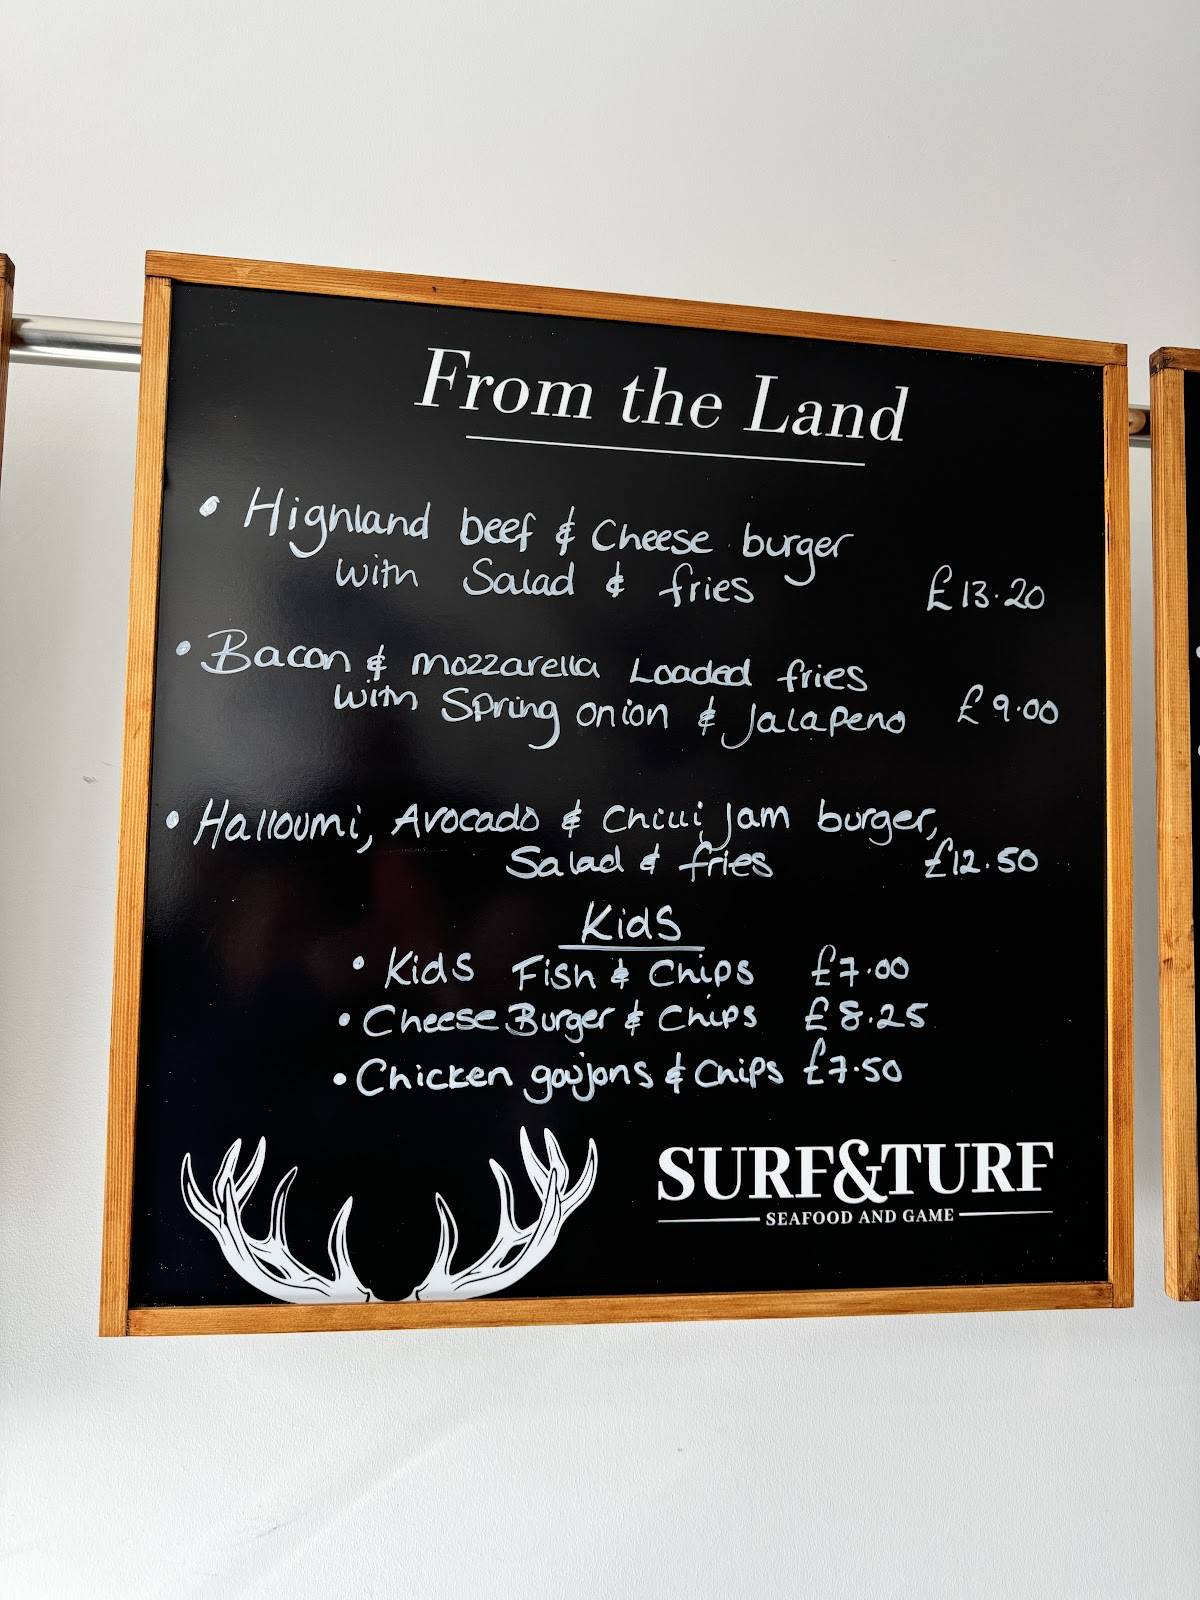 From the Land
• Highland beef & Cheese burger
with Salad & fries £13.20
• Bacon & mozzarella Loaded fries
with Spring onion & Jalapeno £9.00
• Halloumi, Avocado & Chilli Jam burger,
Salad & fries £12.50
Kids
• Kids Fish & Chips £7.00
• Cheese Burger & Chips £8.25
• Chicken goujons & Chips £7.50
SURF&TURF
SEAFOOD AND GAME